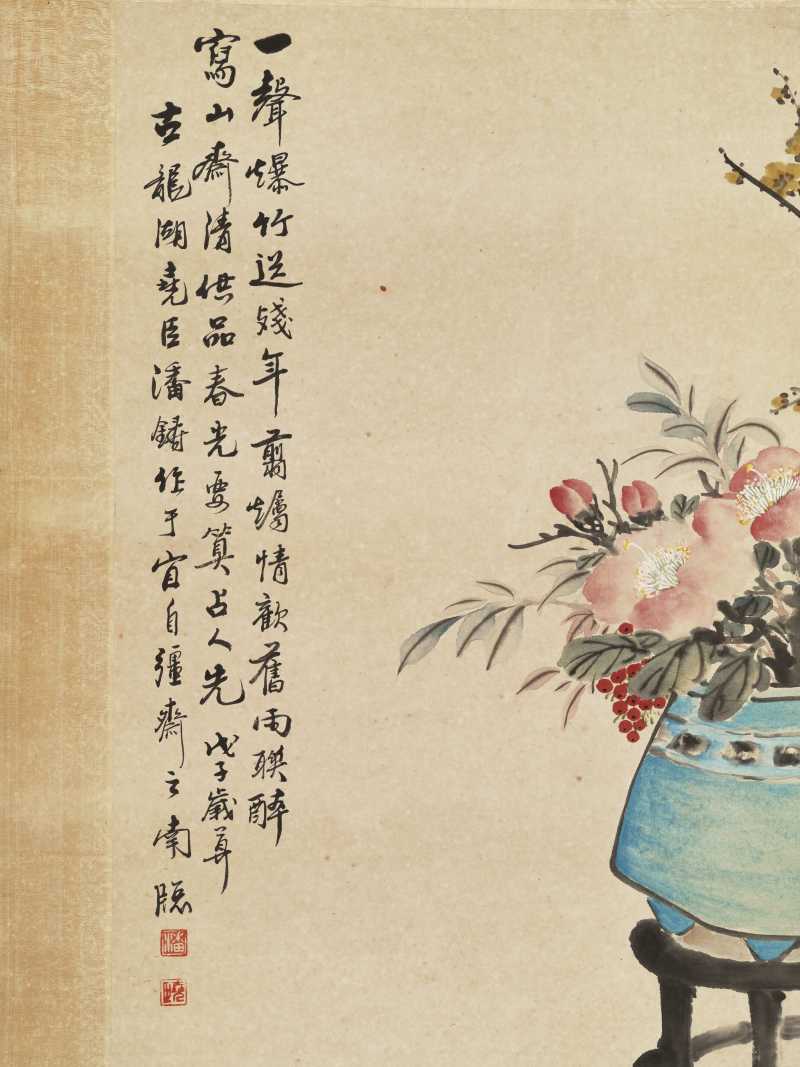 一聲爆竹送殘年翦燭情歡舊雨聯醉
寫山齋清供品春光要算占人先 戊子歲弄
古龍湖堯臣潘鑄作于宜自彊齋之南牕
潘
堯